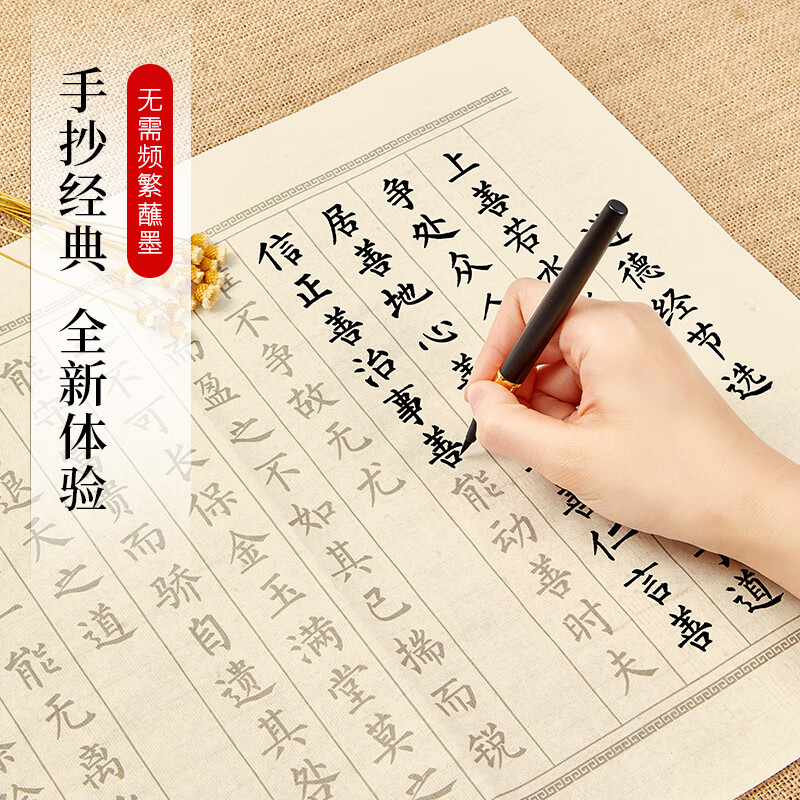 手抄经典 全新体验
无需频繁蘸墨
道德经节选
上善若水
争处众人
道
居善地心善
善仁言善
信正善治事善能动善时夫
不争故无尤
而盈之不如其已揣而锐
不可长保金玉满堂莫之
守
贵而骄自遗其咎
能
退天之道
一能无离